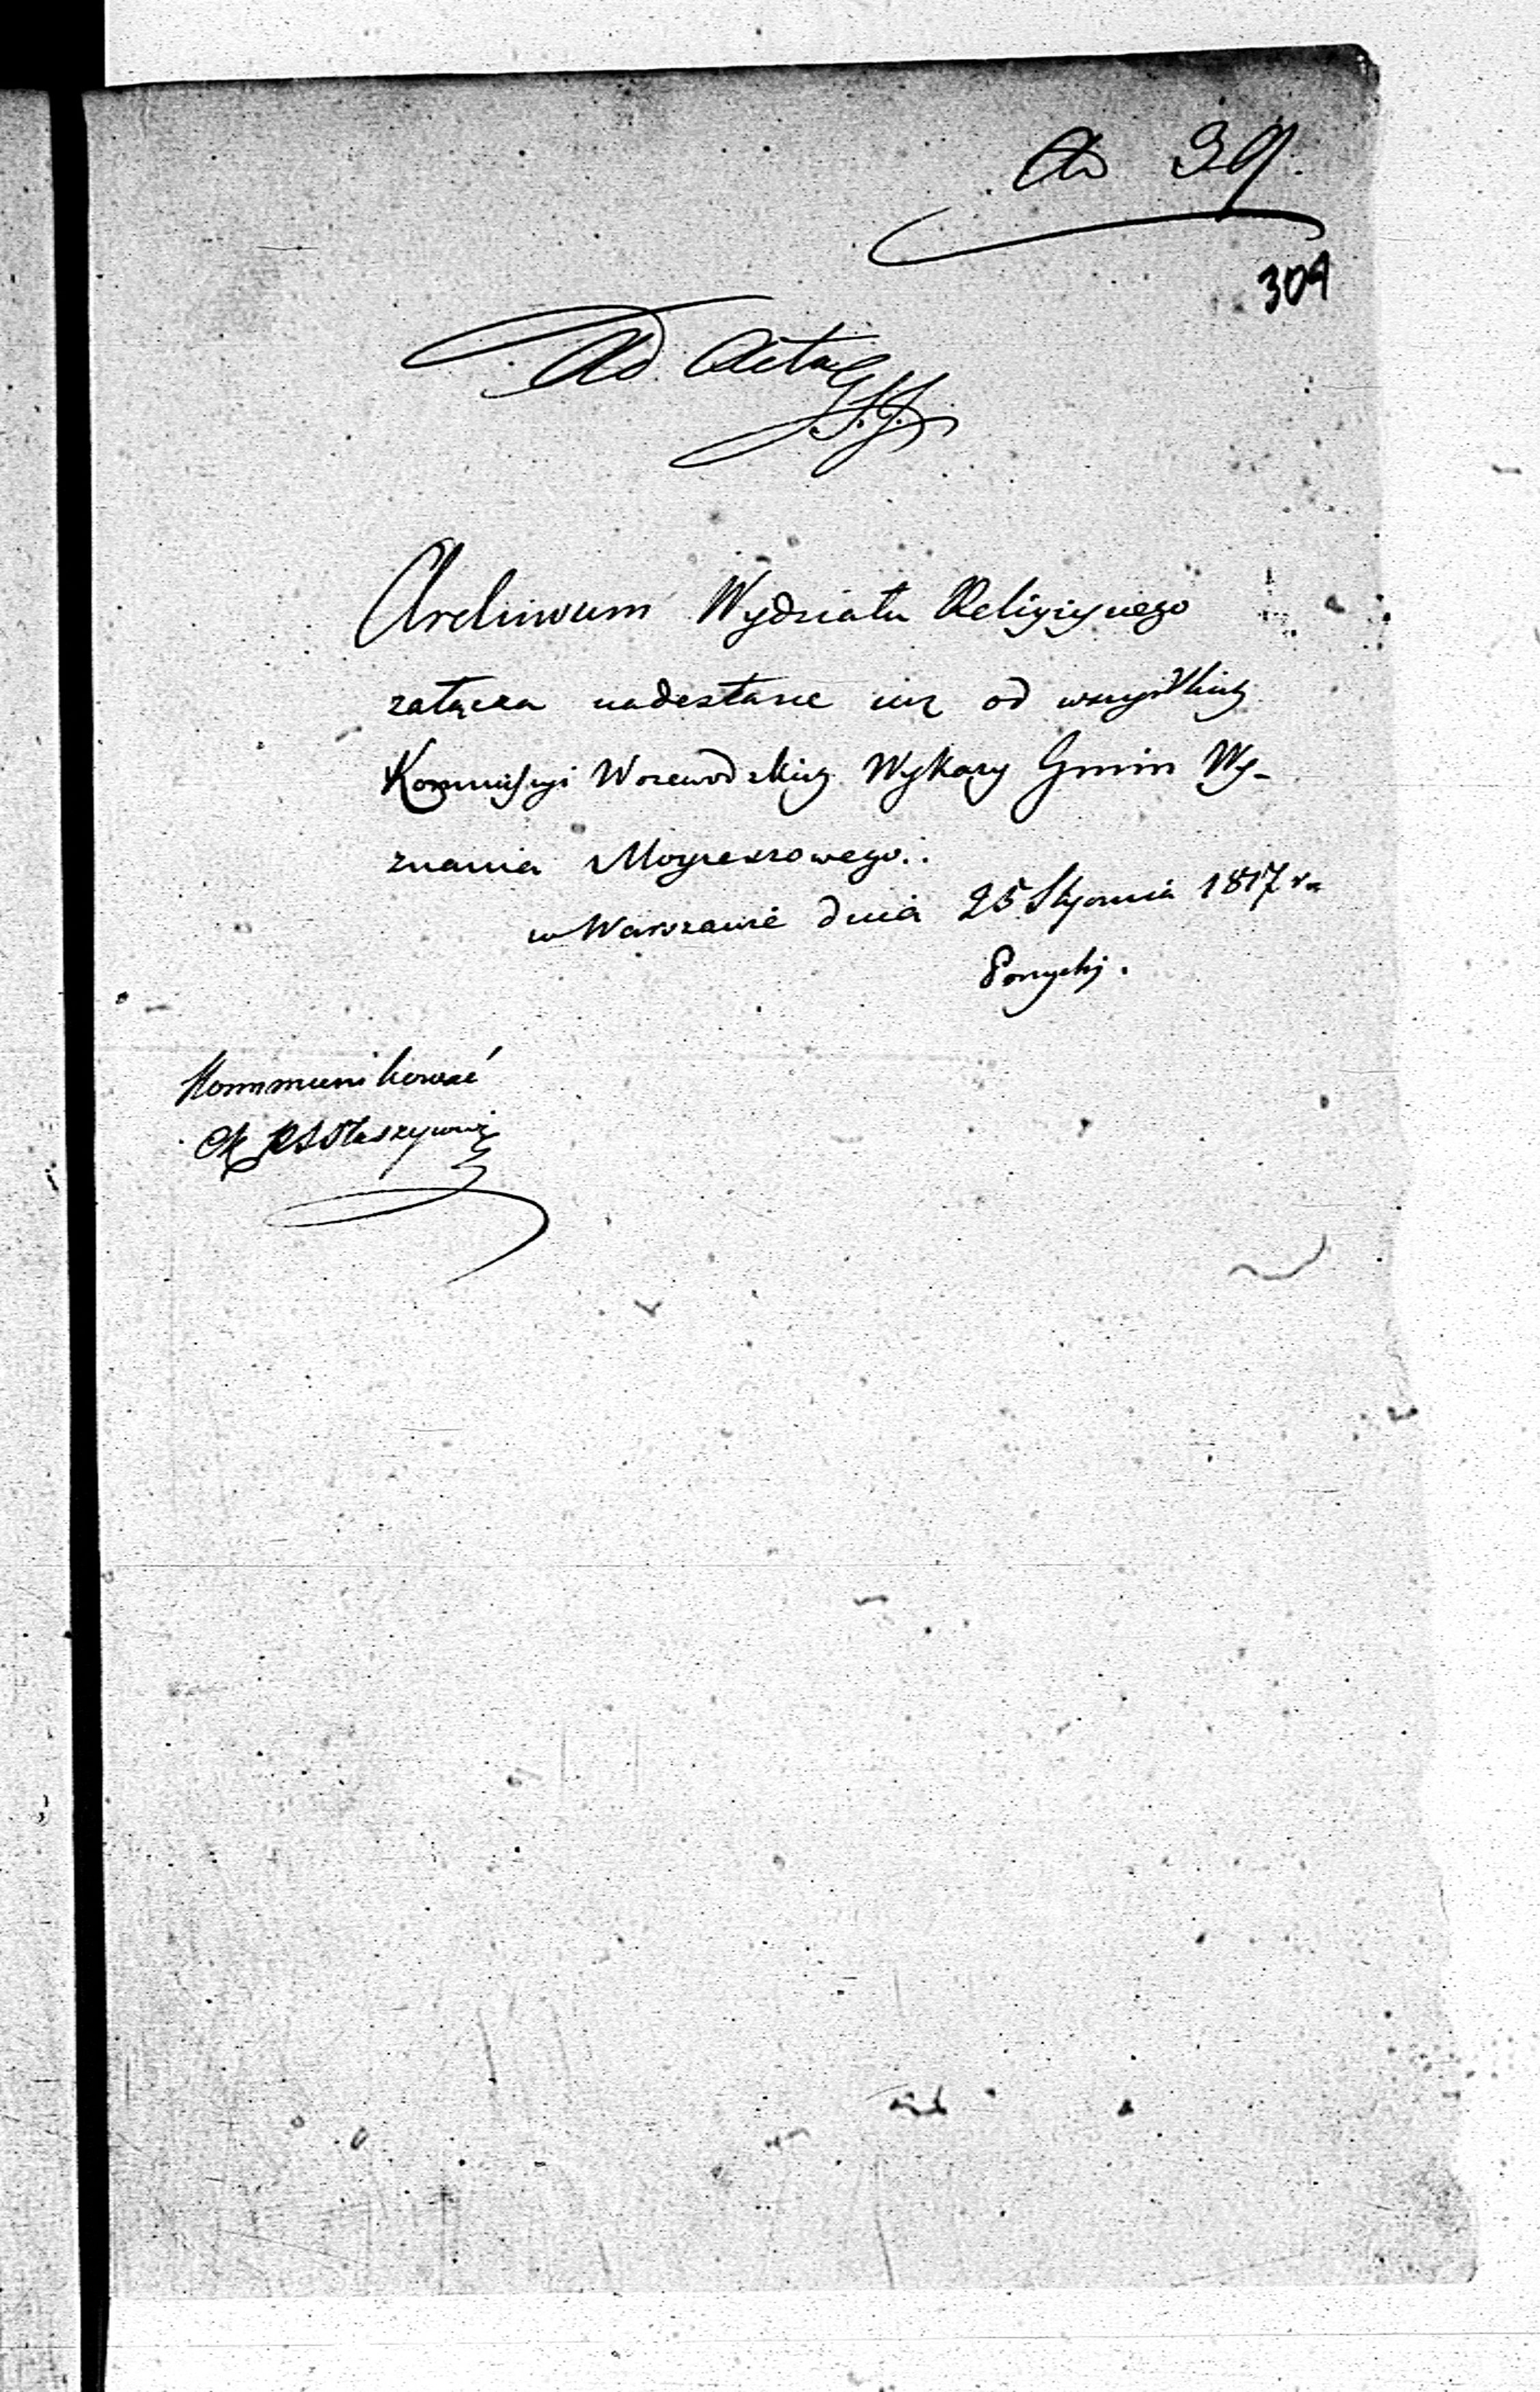 Ad 39.
304
Ad Acta
Archiwum Wydziału Religiynego
załącza nadesłane iuż od wszystkich
Kommissyi Woiewodzkich Wykazy Gmin Wy-
znania Moyżeszowego.
w Warszawie dnia 25 Stycznia 1817 r.
Kommunikować